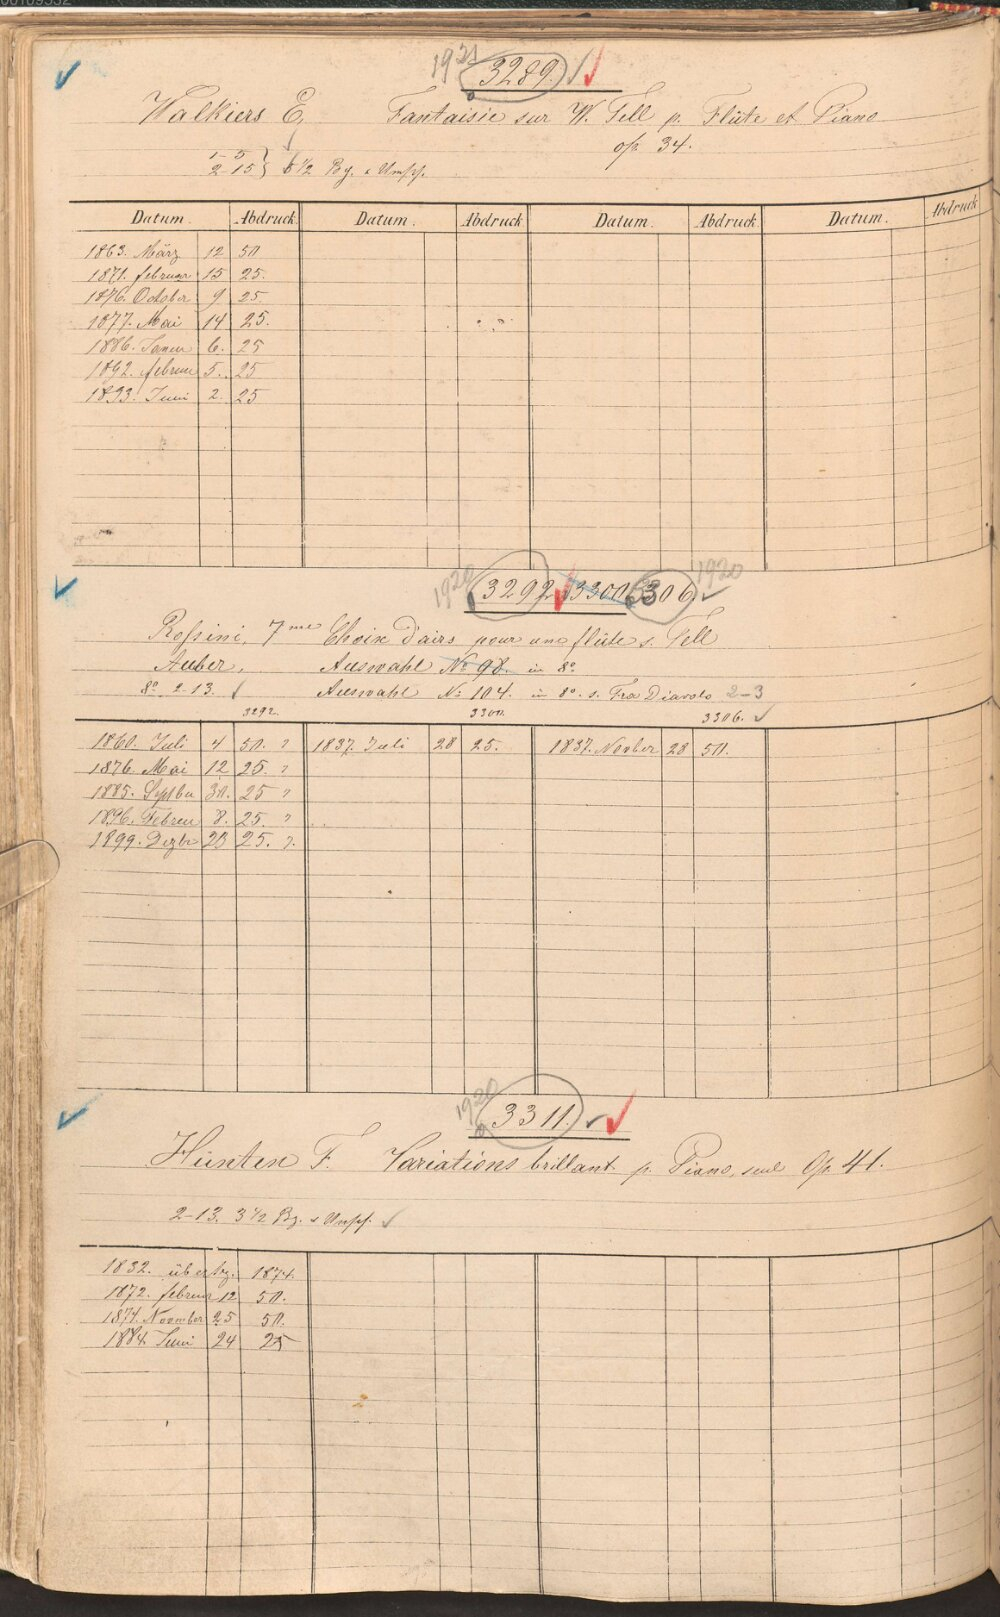 1921 3289.
Walkiers E, Fantaisie sur W. Tell p. Flûte et Piano
op. 34.
1-5
2-15 } 6 1/2 Bg. & Umschl.
Datum. Abdruck Datum. Abdruck Datum. Abdruck Datum. Abdruck
1863. März 12 50
1871. februar 15 25.
1876. October 9 25.
1877. Mai 14 25.
1886. Januar 6. 25
1892. februar 5. 25
1893. Juni 2. 25
1920 3292 3300. 3306. 1920
Rossini, 7me Choix d'airs pour une flûte s. Tell
Auber. Auswahl No 98. in 8o
8o 2-13. Auswahl No 104. in 8o. s. Fra Diavolo 2-3
3292. 3300. 3306.
1860. Juli 4 50. " 1837. Juli 28 25. 1837. Novber 28 50.
1876. Mai 12 25. "
1885. Septbr 30. 25 "
1896. Februar 8. 25. "
1899. Dezbr 28 25. "
1920 3311.
Hünten F. Variations brillant p. Piano seul Op. 41.
2-13. 3 1/2 Bg. & Umschl.
1832. übertrg. 1874.
1872. februar 12 50.
1874. November 25 50.
1884. Juni 24 25